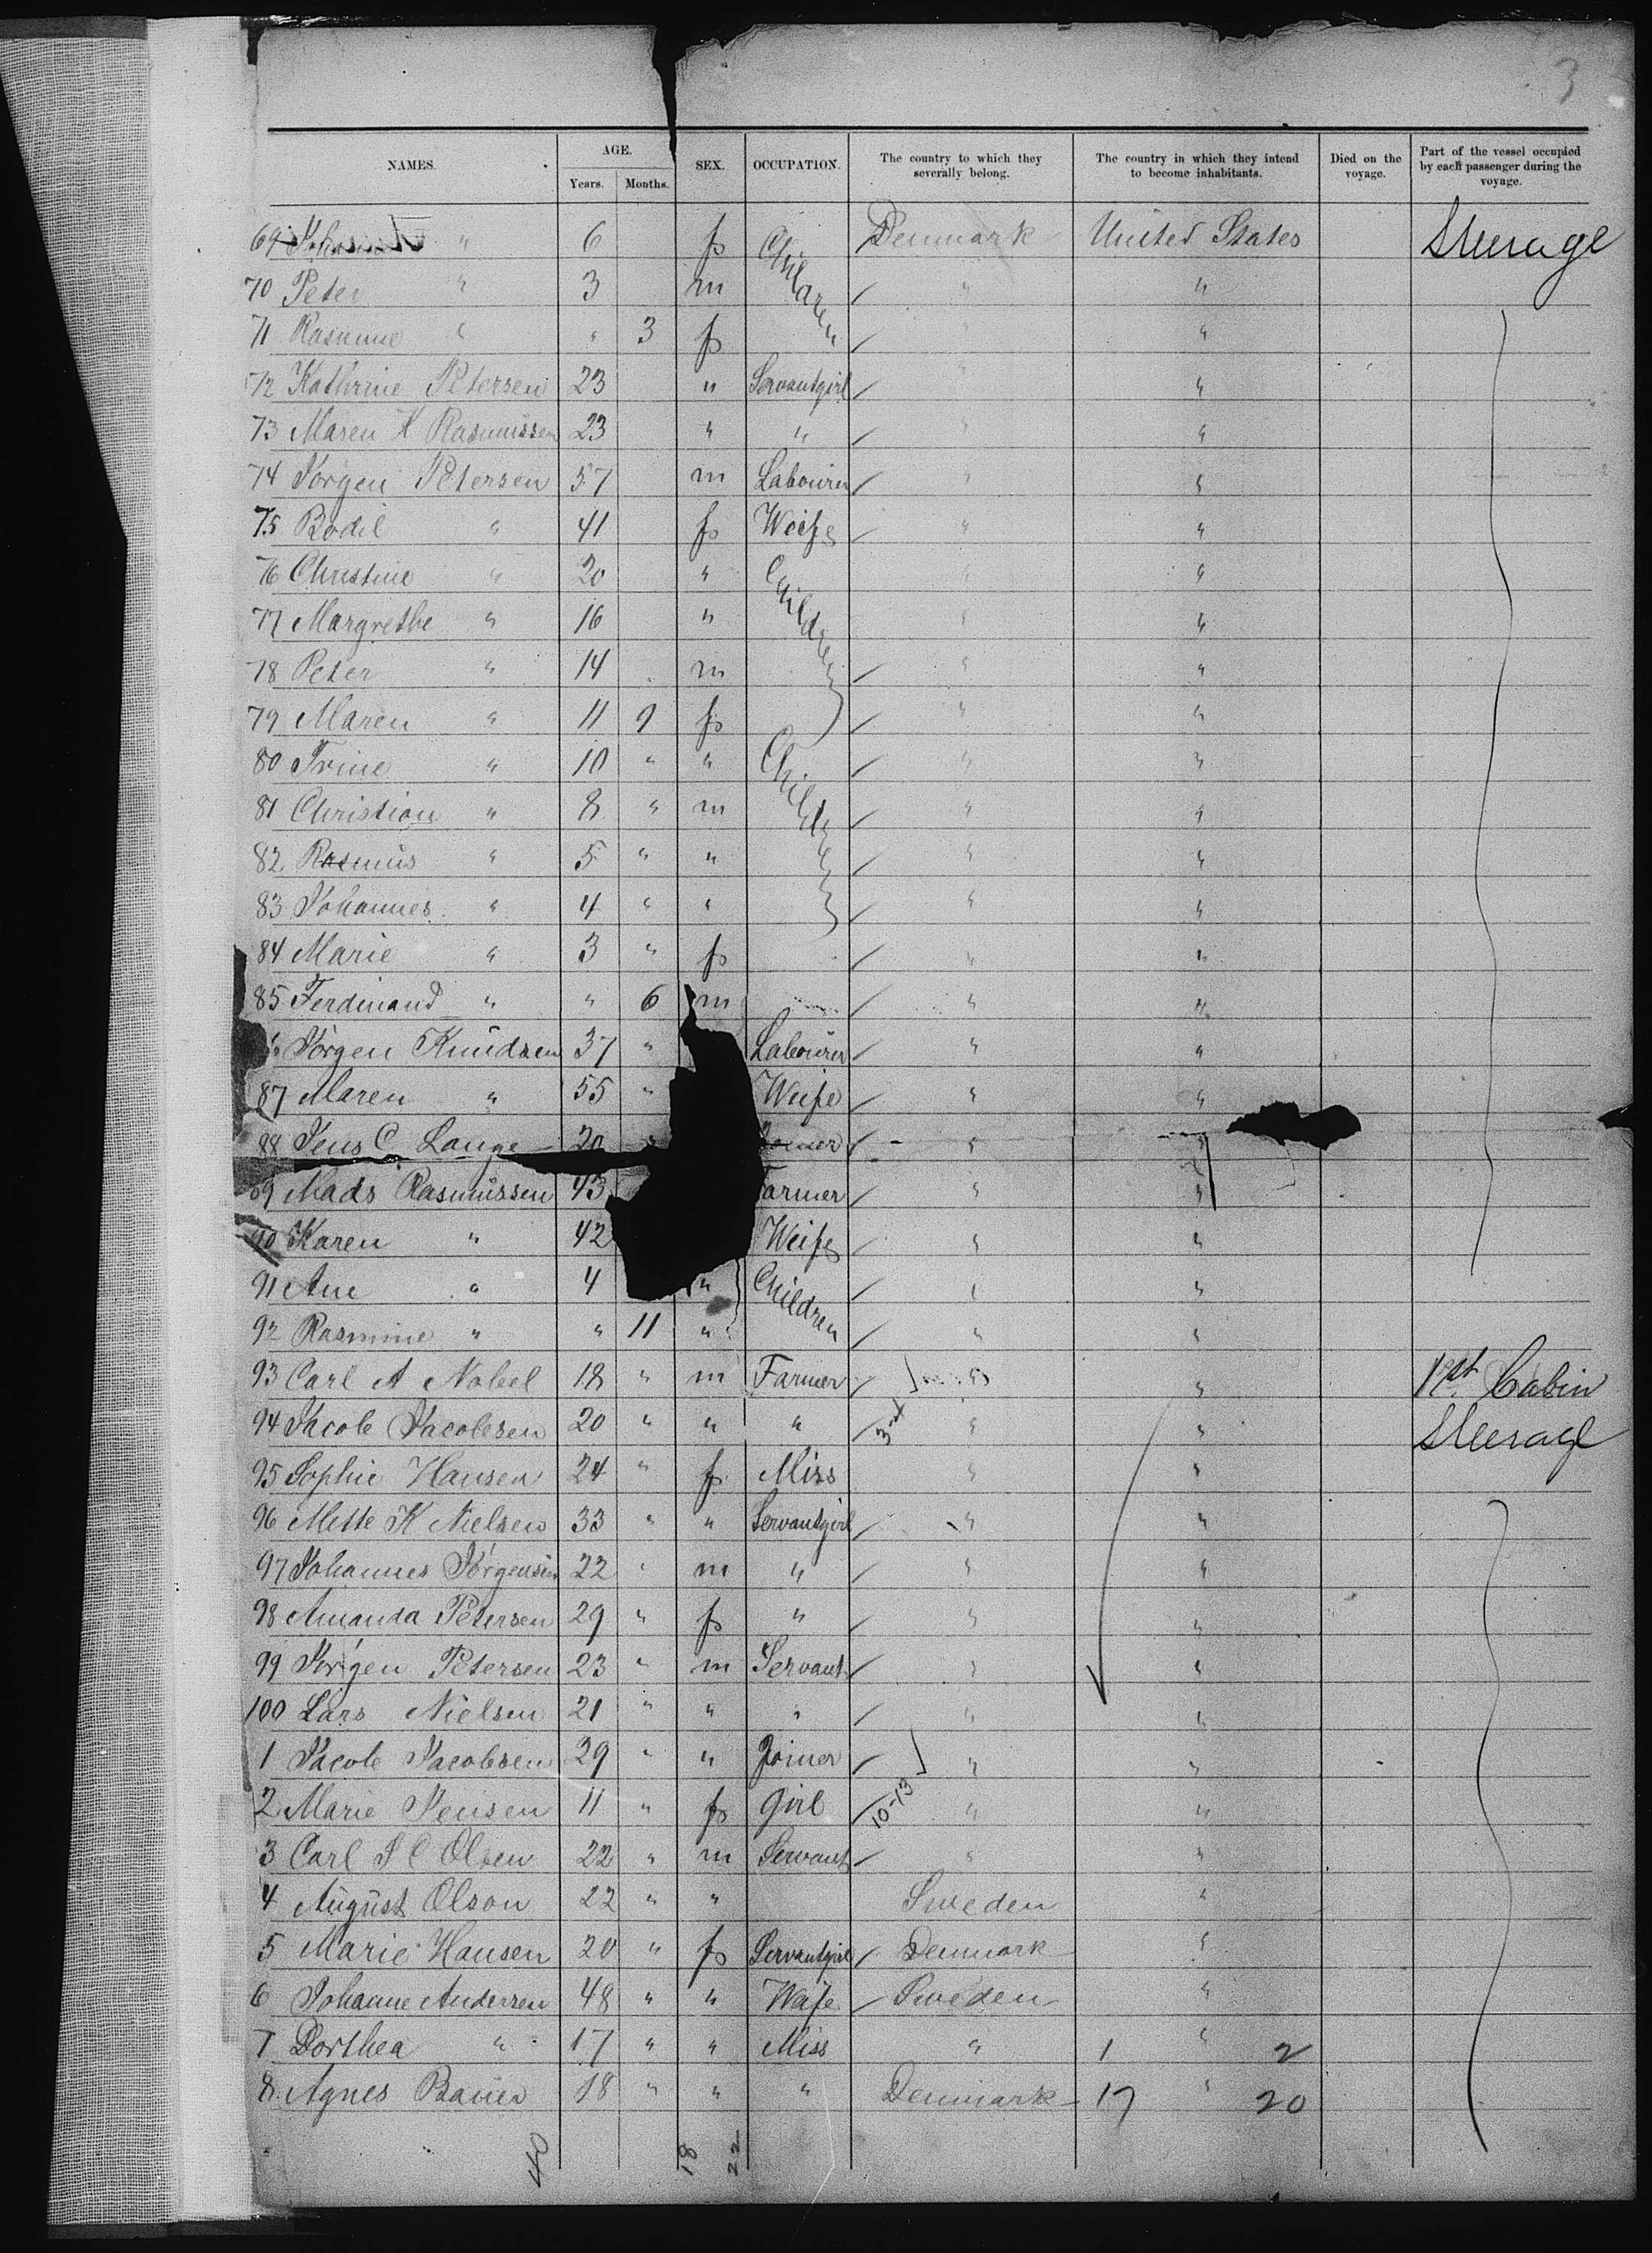 3
NAMES. AGE. Years. Months. SEX. OCCUPATION. The country to which they severally belong. The country in which they intend to become inhabitants. Died on the voyage. Part of the vessel occupied by each passenger during the voyage.
69 " 6 f Children Denmark United States Steerage
70 Peter " 3 m " "
71 Rasmine " " 3 f " "
72 Kathrine Petersen 23 " Servantgirl " "
73 Maren K Rasmussen 23 " " " "
74 Jörgen Petersen 57 m Labourer " "
75 Bodil " 41 f Weife " "
76 Christine " 20 " Children " "
77 Margrethe " 16 " " "
78 Peter " 14 m " "
79 Maren " 11 9 f " "
80 Trine " 10 " " Children " "
81 Christian " 8 " m " "
82 Rasmus " 5 " " " "
83 Johannes " 4 " " " "
84 Marie " 3 " f " "
85 Ferdinand " " 6 m " "
Jörgen Knudsen 37 " Labourer " "
87 Maren " 55 " Weife " "
88 Jens C. Lange 20 " " "
89 Mads Rasmussen 43 Farmer " "
90 Karen " 42 Weife " "
91 Ane " 4 " Children " "
92 Rasmine " " 11 " " "
93 Carl A Nobel 18 " m Farmer " " 1st Cabin
94 Jacob Jacobsen 20 " " " 3rd " " Steerage
95 Sophie Hansen 24 " f Miss " "
96 Mette K Nielsen 33 " " Servantgirl " "
97 Johannes Jörgensen 22 " m " " "
98 Amanda Petersen 29 " f " " "
99 Jörgen Petersen 23 " m Servant " "
100 Lars Nielsen 21 " " " " "
1 Jacob Jacobsen 29 " " Joiner " "
2 Marie Jensen 11 " f Girl 10-13 " "
3 Carl J C Olsen 22 " m Servant " "
4 August Olson 22 " " Sweden "
5 Marie Hansen 20 " f Servantgirl Denmark "
6 Johanne Andersen 48 " " Wife Sweden "
7 Dorthea " 17 " " Miss " 1 " 2
8 Agnes Bauer 18 " " " Denmark 17 " 20
40 18 22